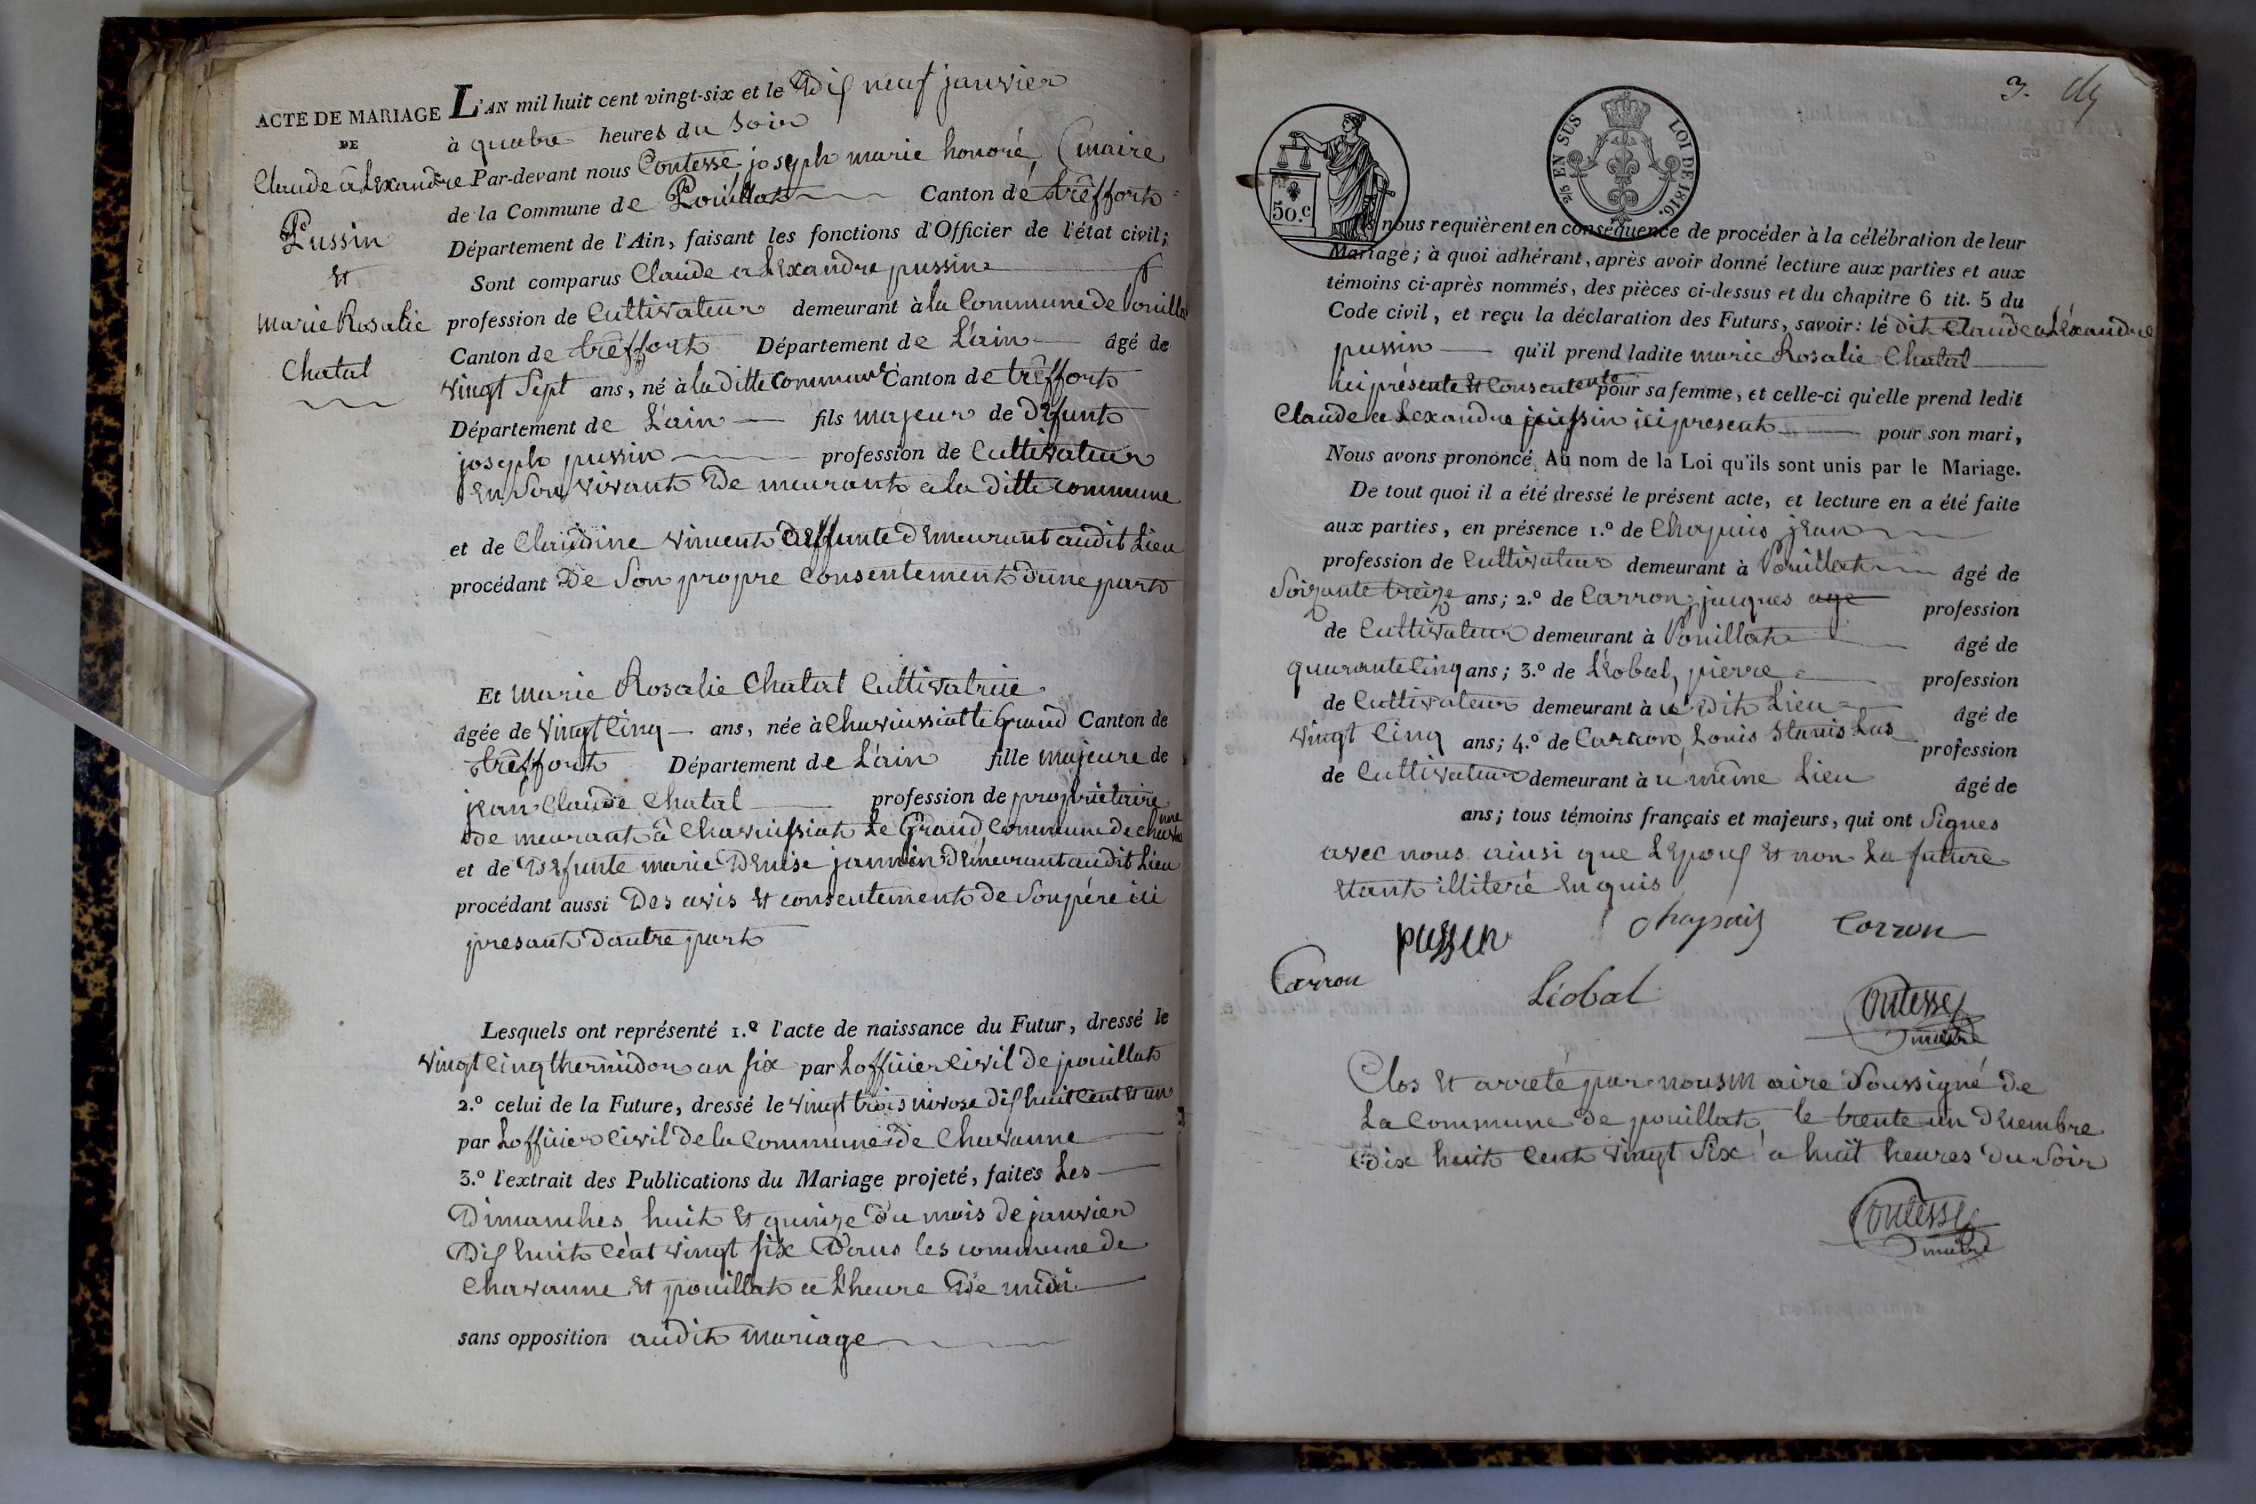 ACTE DE MARIAGE
DE
Claude alexandre
Pussin
Et
marie Rosalie
Chatal
L'AN mil huit cent vingt-six et le Dix neuf janvier
à quatre heures du Soir
Par-devant nous Contesse joseph marie honoré, maire
de la Commune de Pouillat Canton de trêffort
Département de l'Ain, faisant les fonctions d'Officier de l'état civil;
Sont comparus Claude alexandre pussin
profession de Cultivateur demeurant à la Commune de Pouillat
Canton de trêffort Département de L'ain âgé de
vingt Sept ans, né à la ditte Commune Canton de trêffort
Département de L'ain fils majeur de Defunt
joseph pussin profession de Cultivateur
En Son vivant De meurant a la ditte commune
et de Claudine vincent Deffunte Demeurant audit Lieu
procédant De Son propre Consentement d'une part
Et marie Rosalie Chatal Cultivatrice
âgée de vingt Cinq ans, née à Chavussiat le Grand Canton de
trêffort Département de L'ain fille majeure de
jean Claude Chatal profession de propriétaire
de meurant à Chavussiat Le Grand Commune de chavanne
et de Defunte marie Denise jannin Demeurant audit Lieu
procédant aussi Des avis et consentement de Son père ici
presant d'autre part
Lesquels ont représenté 1.º l'acte de naissance du Futur, dressé le
vingt Cinq thermidor an six par Lofficier Civil de pouillat
2.º celui de la Future, dressé le vingt trois nivose Dix huit Cent et un
par Lofficier Civil de la Commune de Chavanne
3.º l'extrait des Publications du Mariage projeté, faites Les
Dimanches huit et quinze du mois de janvier
Dix huit cent vingt six Dans les commune de
Chavanne et pouillat a l'heure De midi
sans opposition audit mariage
3.
50.c
2/5 EN SUS LOI DE 1816.
Ils nous requièrent en conséquence de procéder à la célébration de leur
Mariage; à quoi adhérant, après avoir donné lecture aux parties et aux
témoins ci-après nommés, des pièces ci-dessus et du chapitre 6 tit. 5 du
Code civil, et reçu la déclaration des Futurs, savoir: le dit Claude alexandre
pussin qu'il prend ladite marie Rosalie Chatal
ici présente et Consentente pour sa femme, et celle-ci qu'elle prend ledit
Claude alexandre pussin ici present pour son mari,
Nous avons prononcé Au nom de la Loi qu'ils sont unis par le Mariage.
De tout quoi il a été dressé le présent acte, et lecture en a été faite
aux parties, en présence 1.º de Chapuis jean
profession de Cultivateur demeurant à Pouillat âgé de
Soixante treize ans; 2.º de Carron jacques age profession
de Cultivateur demeurant à Pouillat âgé de
quarante Cinq ans; 3.º de Léobal, pierre profession
de Cultivateur demeurant à u Dit Lieu âgé de
vingt Cinq ans; 4.º de Carron Louis Stanis Las profession
de Cultivateur demeurant à u même Lieu âgé de
ans; tous témoins français et majeurs, qui ont Signes
avec nous ainsi que Lepoux et non La future
Etant illiteré Enquis
pussin Chapuis Carron
Carron Léobal Contesse
maire
Clos et arreté par nous maire Soussigné de
La Commune de pouillat, le trente un Décembre
Dix huit Cent vingt Six à huit heures du Soir
Contesse
maire